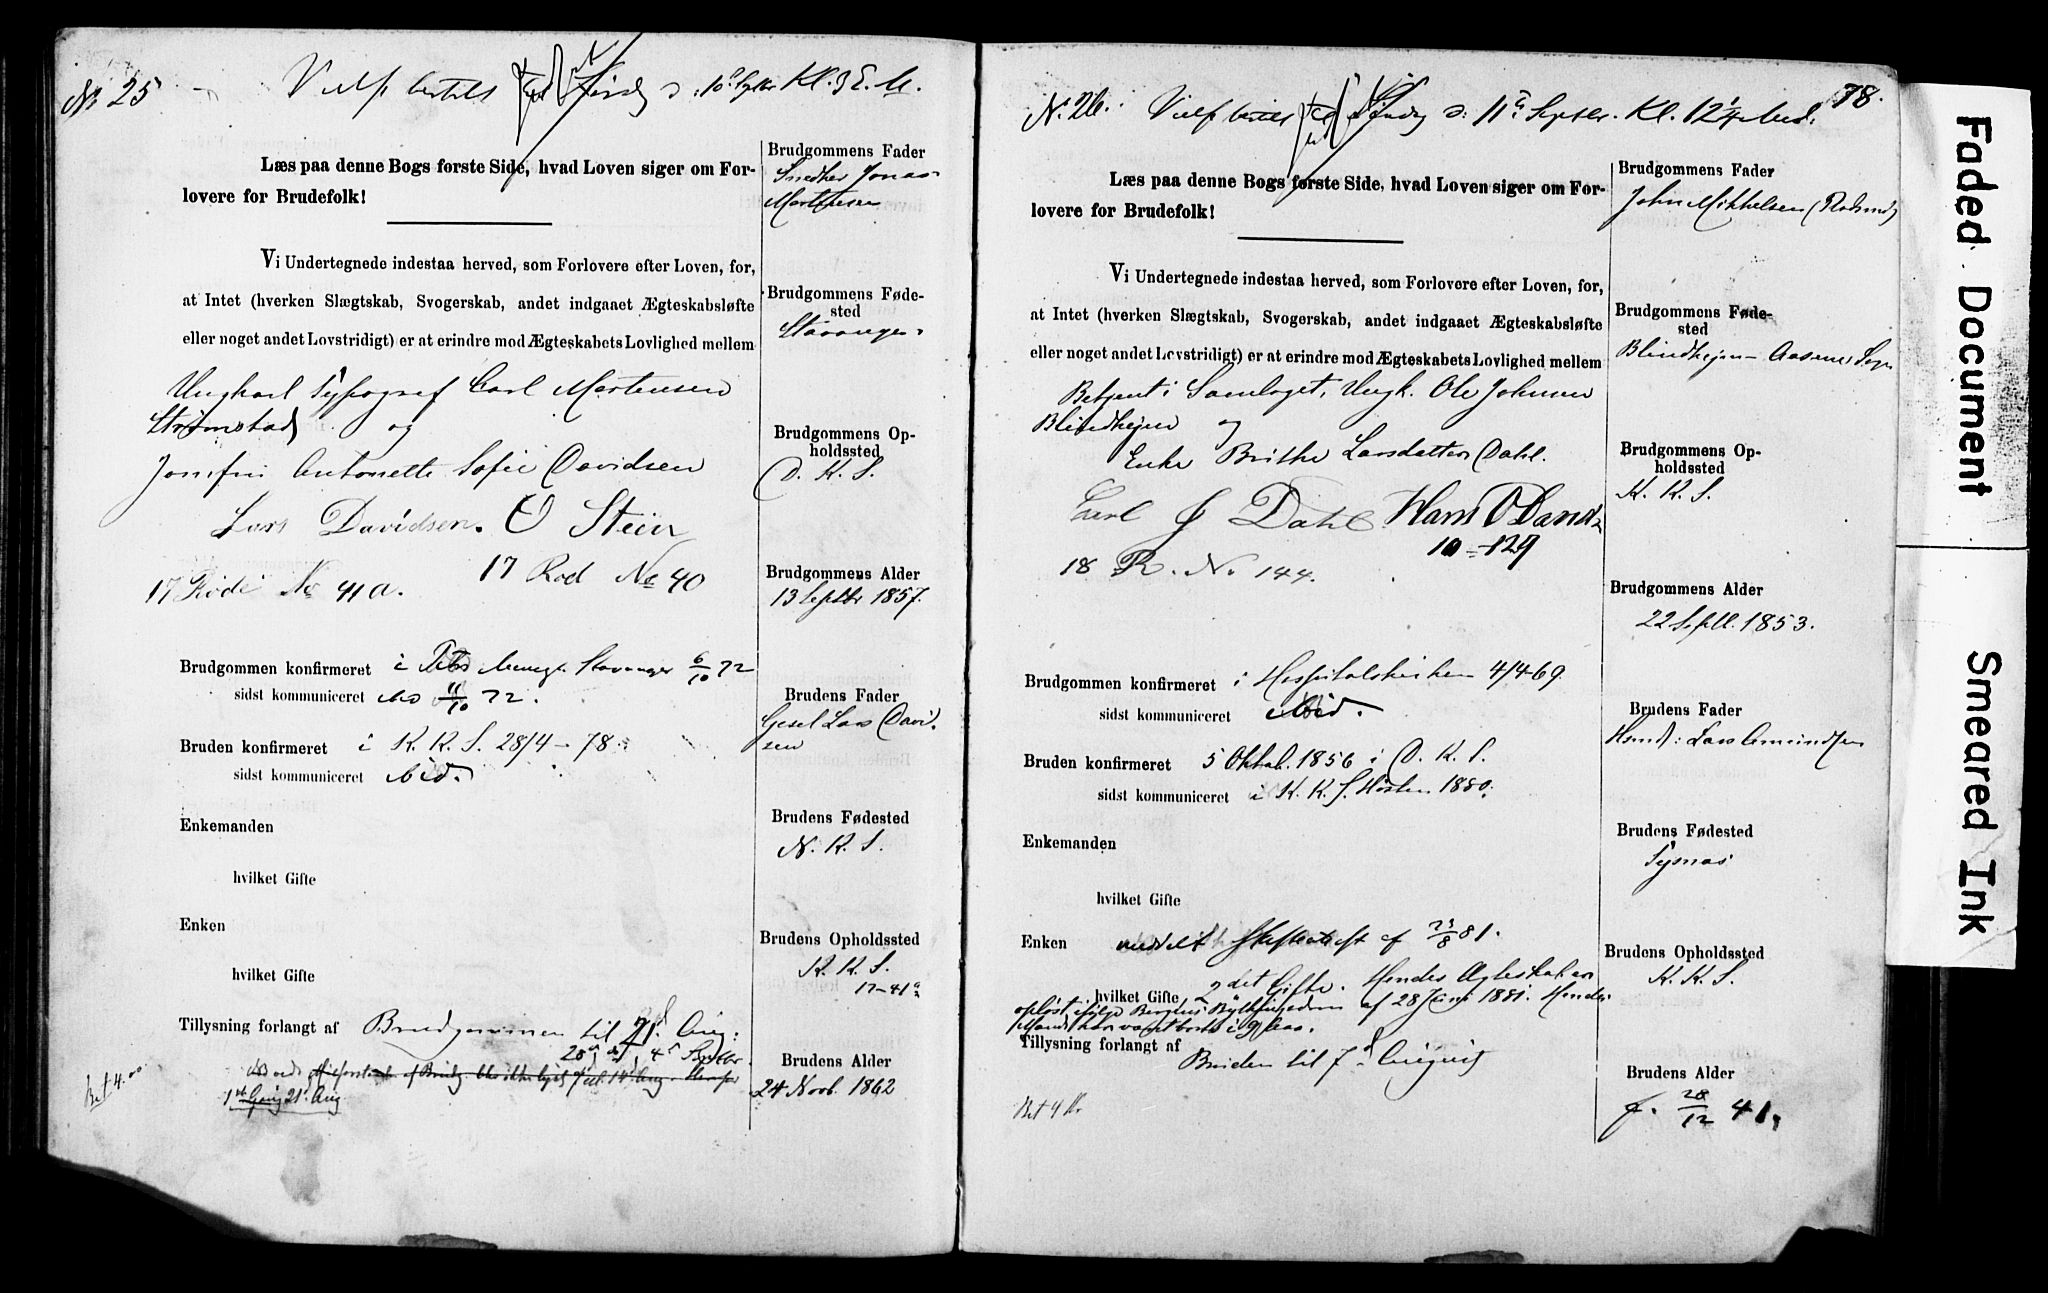 No 25
Vielse bestilt d. 10 Septbr Kl. 3 E. M.
Læs paa denne Bogs første Side, hvad Loven siger om For-
lovere for Brudefolk!
Vi Undertegnede indestaa herved, som Forlovere efter Loven, for,
at Intet (hverken Slægtskab, Svogerskab, andet indgaaet Ægteskabsløfte
eller noget andet Lovstridigt) er at erindre mod Ægteskabets Lovlighed mellem
Ungkarl Typograf Carl Martensen
Strømstad og
Jomfru Antonette Sofie Davidsen
Lars Davidsen. O Stein
17 Rode No 41a. 17 Rod No 40
Brudgommen konfirmeret i Petri Menigh. Stavanger 6/10 72
sidst kommuniceret 11/10 72.
Bruden konfirmeret i K. K. S. 28/4 - 78.
sidst kommuniceret ibid.
Enkemanden
hvilket Gifte
Enken
hvilket Gifte
Tillysning forlangt af Brudgommen til 21d Aug.
28d, 4d Septbr.
1ste Gang 21d Aug
Bet 4.00
Brudgommens Fader
Snedker Jonas
Martensen
Brudgommens Føde-
sted
Stavanger
Brudgommens Op-
holdssted
D. K. S.
Brudgommens Alder
13 Septbr 1857.
Brudens Fader
Gesel Lars Davi-
sen
Brudens Fødested
N. K. S.
Brudens Opholdssted
K. K. S.
17-41a
Brudens Alder
24 Novb. 1862
78.
No. 26.
Vielse bestilt d: 11te Septbr. Kl. 12 1/4
Læs paa denne Bogs første Side, hvad Loven siger om For-
lovere for Brudefolk!
Vi Undertegnede indestaa herved, som Forlovere efter Loven, for,
at Intet (hverken Slægtskab, Svogerskab, andet indgaaet Ægteskabsløfte
eller noget andet Lovstridigt) er at erindre mod Ægteskabets Lovlighed mellem
Betjent i Samlaget, Ungk. Ole Johnsen
Blindhejm og
Enke Brithe Larsdatter Dahl.
Carl J Dahl Hans O Davidsn
10 - 129
18 R. No. 144.
Brudgommen konfirmeret i Hospitalskirken 4/4 69.
sidst kommuniceret ibid.
Bruden konfirmeret 5 Oktob. 1856 i D. K. S.
sidst kommuniceret i K. K. S. Høsten 1880.
Enkemanden
hvilket Gifte
Enken meddelt Skifteattest af 23/8 81.
hvilket Gifte 2det Gifte. Hendes Ægteskab er
opløst ifølge Bergens Bythingsdom af 28 Juni 1881. Hendes
Mand har været borte i 9 Aar.
Tillysning forlangt af
Bruden til 7d August
Bet 4 Kr
Brudgommens Fader
John Mikkelsen (Rodmd)
Brudgommens Føde-
sted
Blindhejm - Aasene Sogn
Brudgommens Op-
holdssted
K. K. S.
Brudgommens Alder
22 Septb. 1853.
Brudens Fader
Husmd: Lars Amundsen
Brudens Fødested
Sysnæs
Brudens Opholdssted
K. K. S.
Brudens Alder
f. 28/12 41.
Faded Document
Smeared Ink